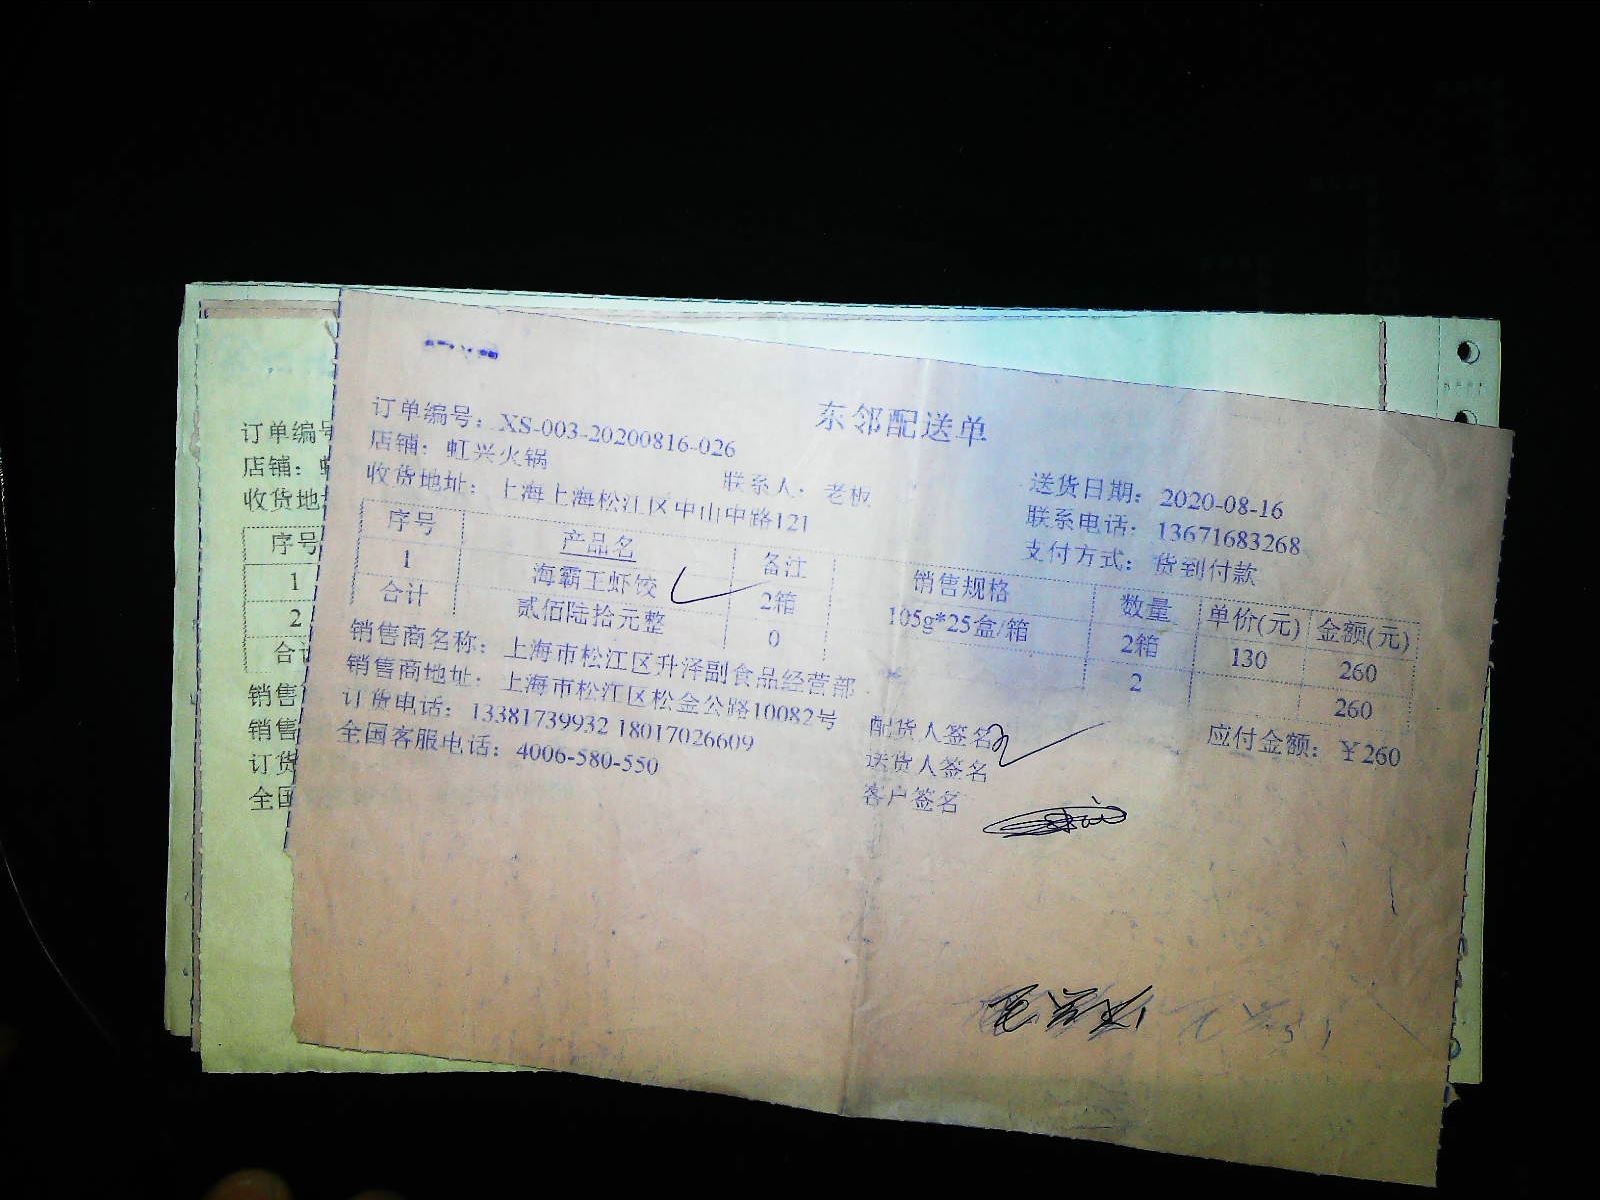 东邻配送单
订单编号：XS-003-20200816-026
店铺：虹兴火锅 联系人：老板 送货日期：2020-08-16
收货地址：上海上海松江区中山中路121 联系电话：13671683268
支付方式：货到付款
序号 产品名 备注 销售规格 数量 单价(元) 金额(元)
1 海霸王虾饺 2箱 105g*25盒/箱 2箱 130 260
合计 贰佰陆拾元整 0 2 260
销售商名称：上海市松江区升泽副食品经营部 配货人签名 应付金额：￥260
销售商地址：上海市松江区松金公路10082号 送货人签名
订货电话：13381739932 18017026609 客户签名
全国客服电话：4006-580-550
订单编号
店铺：
收货地
序号
1
2
合计
销售
销售
订货
全国